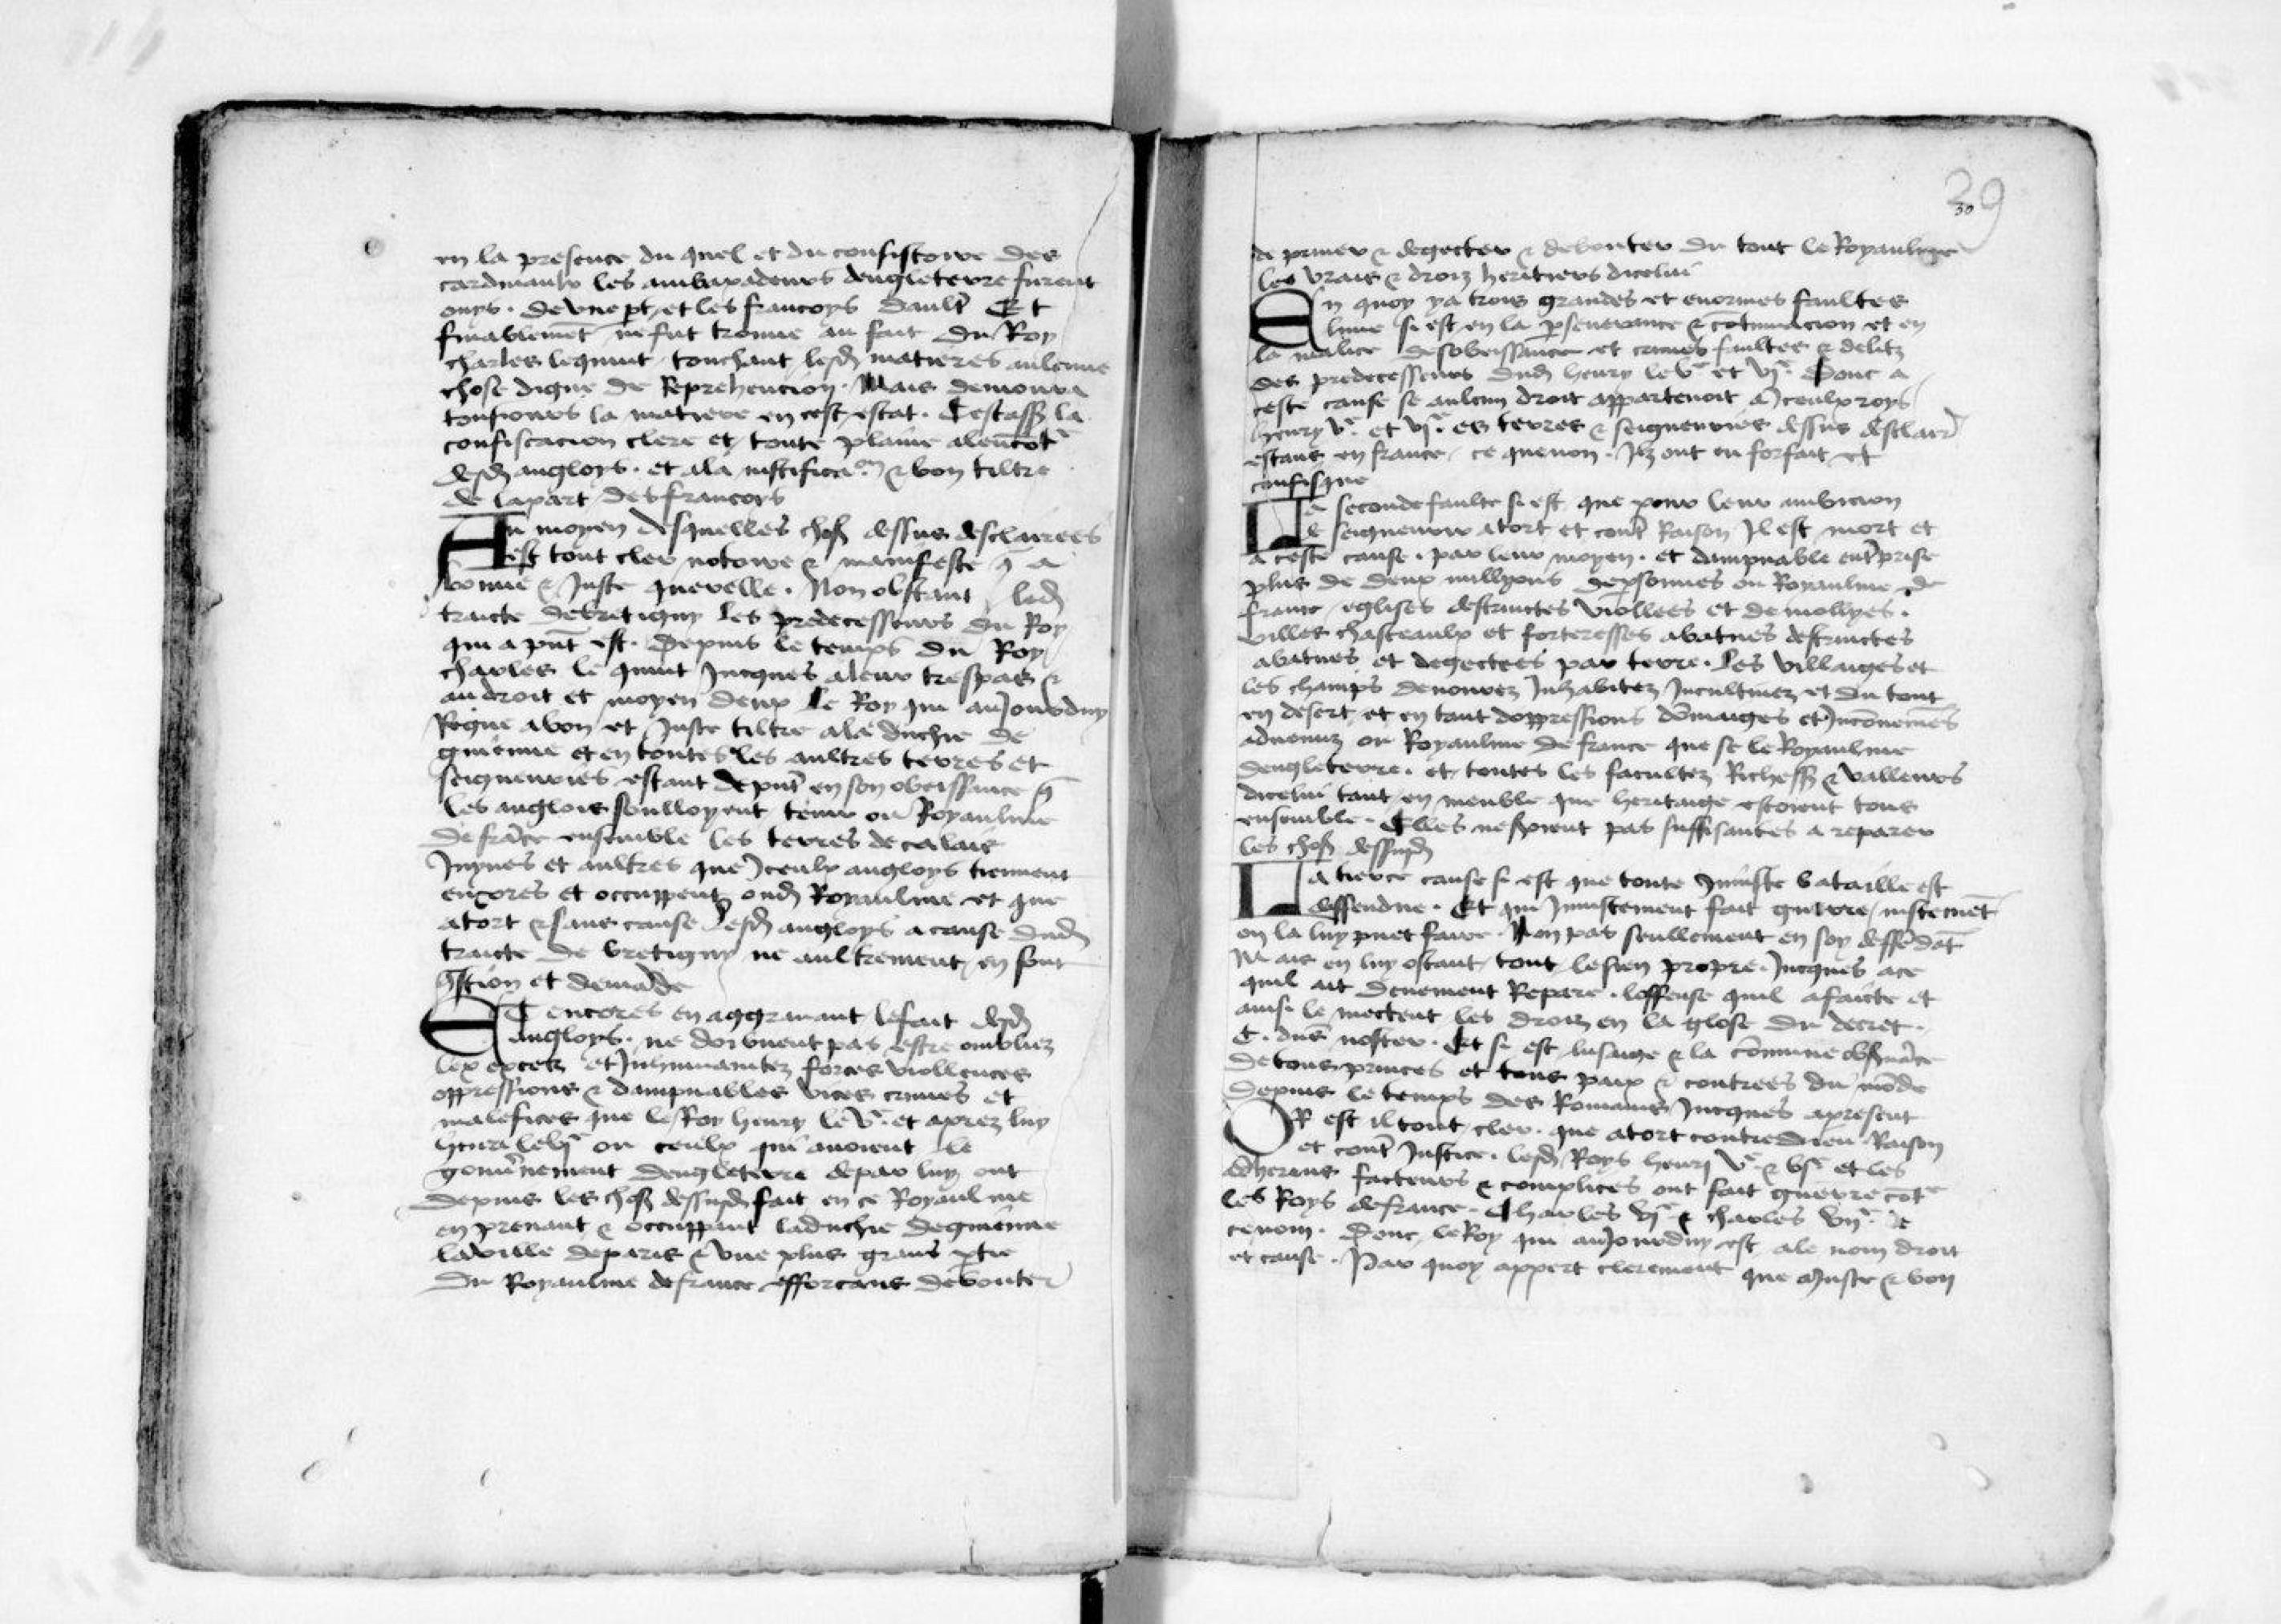 en la presence du quel et du consistoire des
cardinaulx les ambaxadeurs dengleterre furent
ouys . de vne pt et les francoys daultr Et
finablemēt ne fut trouue au fait du Roy
charles lequint touchant lesd matieres aulcune
chose digne de Reprehencion . Mais demoura
tousiours la matiere en cest estat . Cestass la
confiscacion clere et toute plaine alencōtr
desd angloys . et ala iustificaon & bon tiltre
de lapart des francoys
Au moyen desquelles chos dessus desclairees
est tout cler notoire & manifeste q̄ a
bonne & Juste querelle . Non obstant led
traicte debretigny les predecesseurs du Roy
qui a pñt est . Depuis le temps du Roy
charles le quint Jucques aleur trespas &
au droit et moyen deux le Roy qui auJourduy
Regne a bon et Juste tiltre ala duchie de
guienne et en toutes les aultres terres et
seigneuries estant de pñt en son obeissance q̄
les anglois soulloyent tenir ou Royaulme
de frāce ensemble les terres de calais
Juynes et aultres que Jceulx angloys tiennent
encores et occuppent oud Royaulme et que
atort & sans cause lesd angloys a cause dud
traicte de bretigny ne aultrement en font
q̄stion et demāde
ET encores en aggrauant lefait desd
Angloys . ne doiuuent pas estre oubliez
lex excetz et Jnhumanitez forces viollences
oppressions & dampnables vices crimes et
malefices que le Roy henry le vᵉ . et aprez luy
henri le vjᵉ ou ceulx qui auoient le
gouu̇nement dengleterre depar luy ont
depuis les chos dessusd fait en ce Royaulme
en prenant & occuppant laduchie deguienne
laville deparis & vne plus grans ptie
du Royaulme de france efforcans debouter
39
30
de priuer & degecter & debouter du tout le Royaulme
les vrais & droiz heritiers dicelui
En quoy ya trois grandes et enormes faultes
lune si est en la pseuerance & cōtinuacion et en
la malice desobeissance et crimes faultes & delitz
des predecesseurs dud henry le vᵉ et vjᵉ . Donc a
ceste cause se aulcun droit appartenoit a Jceulx roys
henry vᵉ . et vjᵉ . es terres & seigneuries dessus desclair
estans en france ce que non . Jlz ont eu forfait et
confisque
La seconde faulte si est que pour leur ambicion
de seigneurir atort et contr Raison Jl est mort et
a ceste cause . par leur moyen . et dampnable entr̄prise
plus de deux millyons de psonnes ou Royaulme de
france eglises destruictes viollees et demollyes .
villes chasteaulx et forteresses abatues destruictes
abatues et degectees par terre . Les villaiges et
les champs demourez Jnhabitez Jncultiuez et du tout
en desert et en tant doppressions dōmaiges et Jnconueniēs
aduenuz ou Royaulme de france que se le Royaulme
dengleterre . et toutes les facultez Richess & valleurs
dicelui tant en meuble que heritaige estoient tous
ensemble . Elles ne soient pas suffisantes a reparer
les chos dessusd
La tierce cause si est que toute Jniuste bataille est
deffendue . Et qui Jniustement fait guerre iustemēt
on la luy puet faire . Non pas seullement en soy deffēdāt
Mais en luy ostant tout lesien propre . Jucques ace
quil ait deuement Repare . loffense quil afaicte et
ainsi le mectent les droiz en la glose du decret .
C . dn̄s noster . Et si est lusaige & la cōmune obs̄uāce
de tous princes et tous paix & contrees du mōde
depuis le temps des Romains Jucques apresent
OR est il tout cler . que atort contre dieu Raison
et contr Justice . lesd Roys henri vᵉ . & vjᵉ et les
adherans facteurs & complices ont fait guerre cōtr
les Roys de france . Charles vjᵉ & charles vijᵉ . de
ce nom . Donc le Roy qui auJourduy est ale nom droit
et cause . Par quoy appert clerement que a Juste & bon